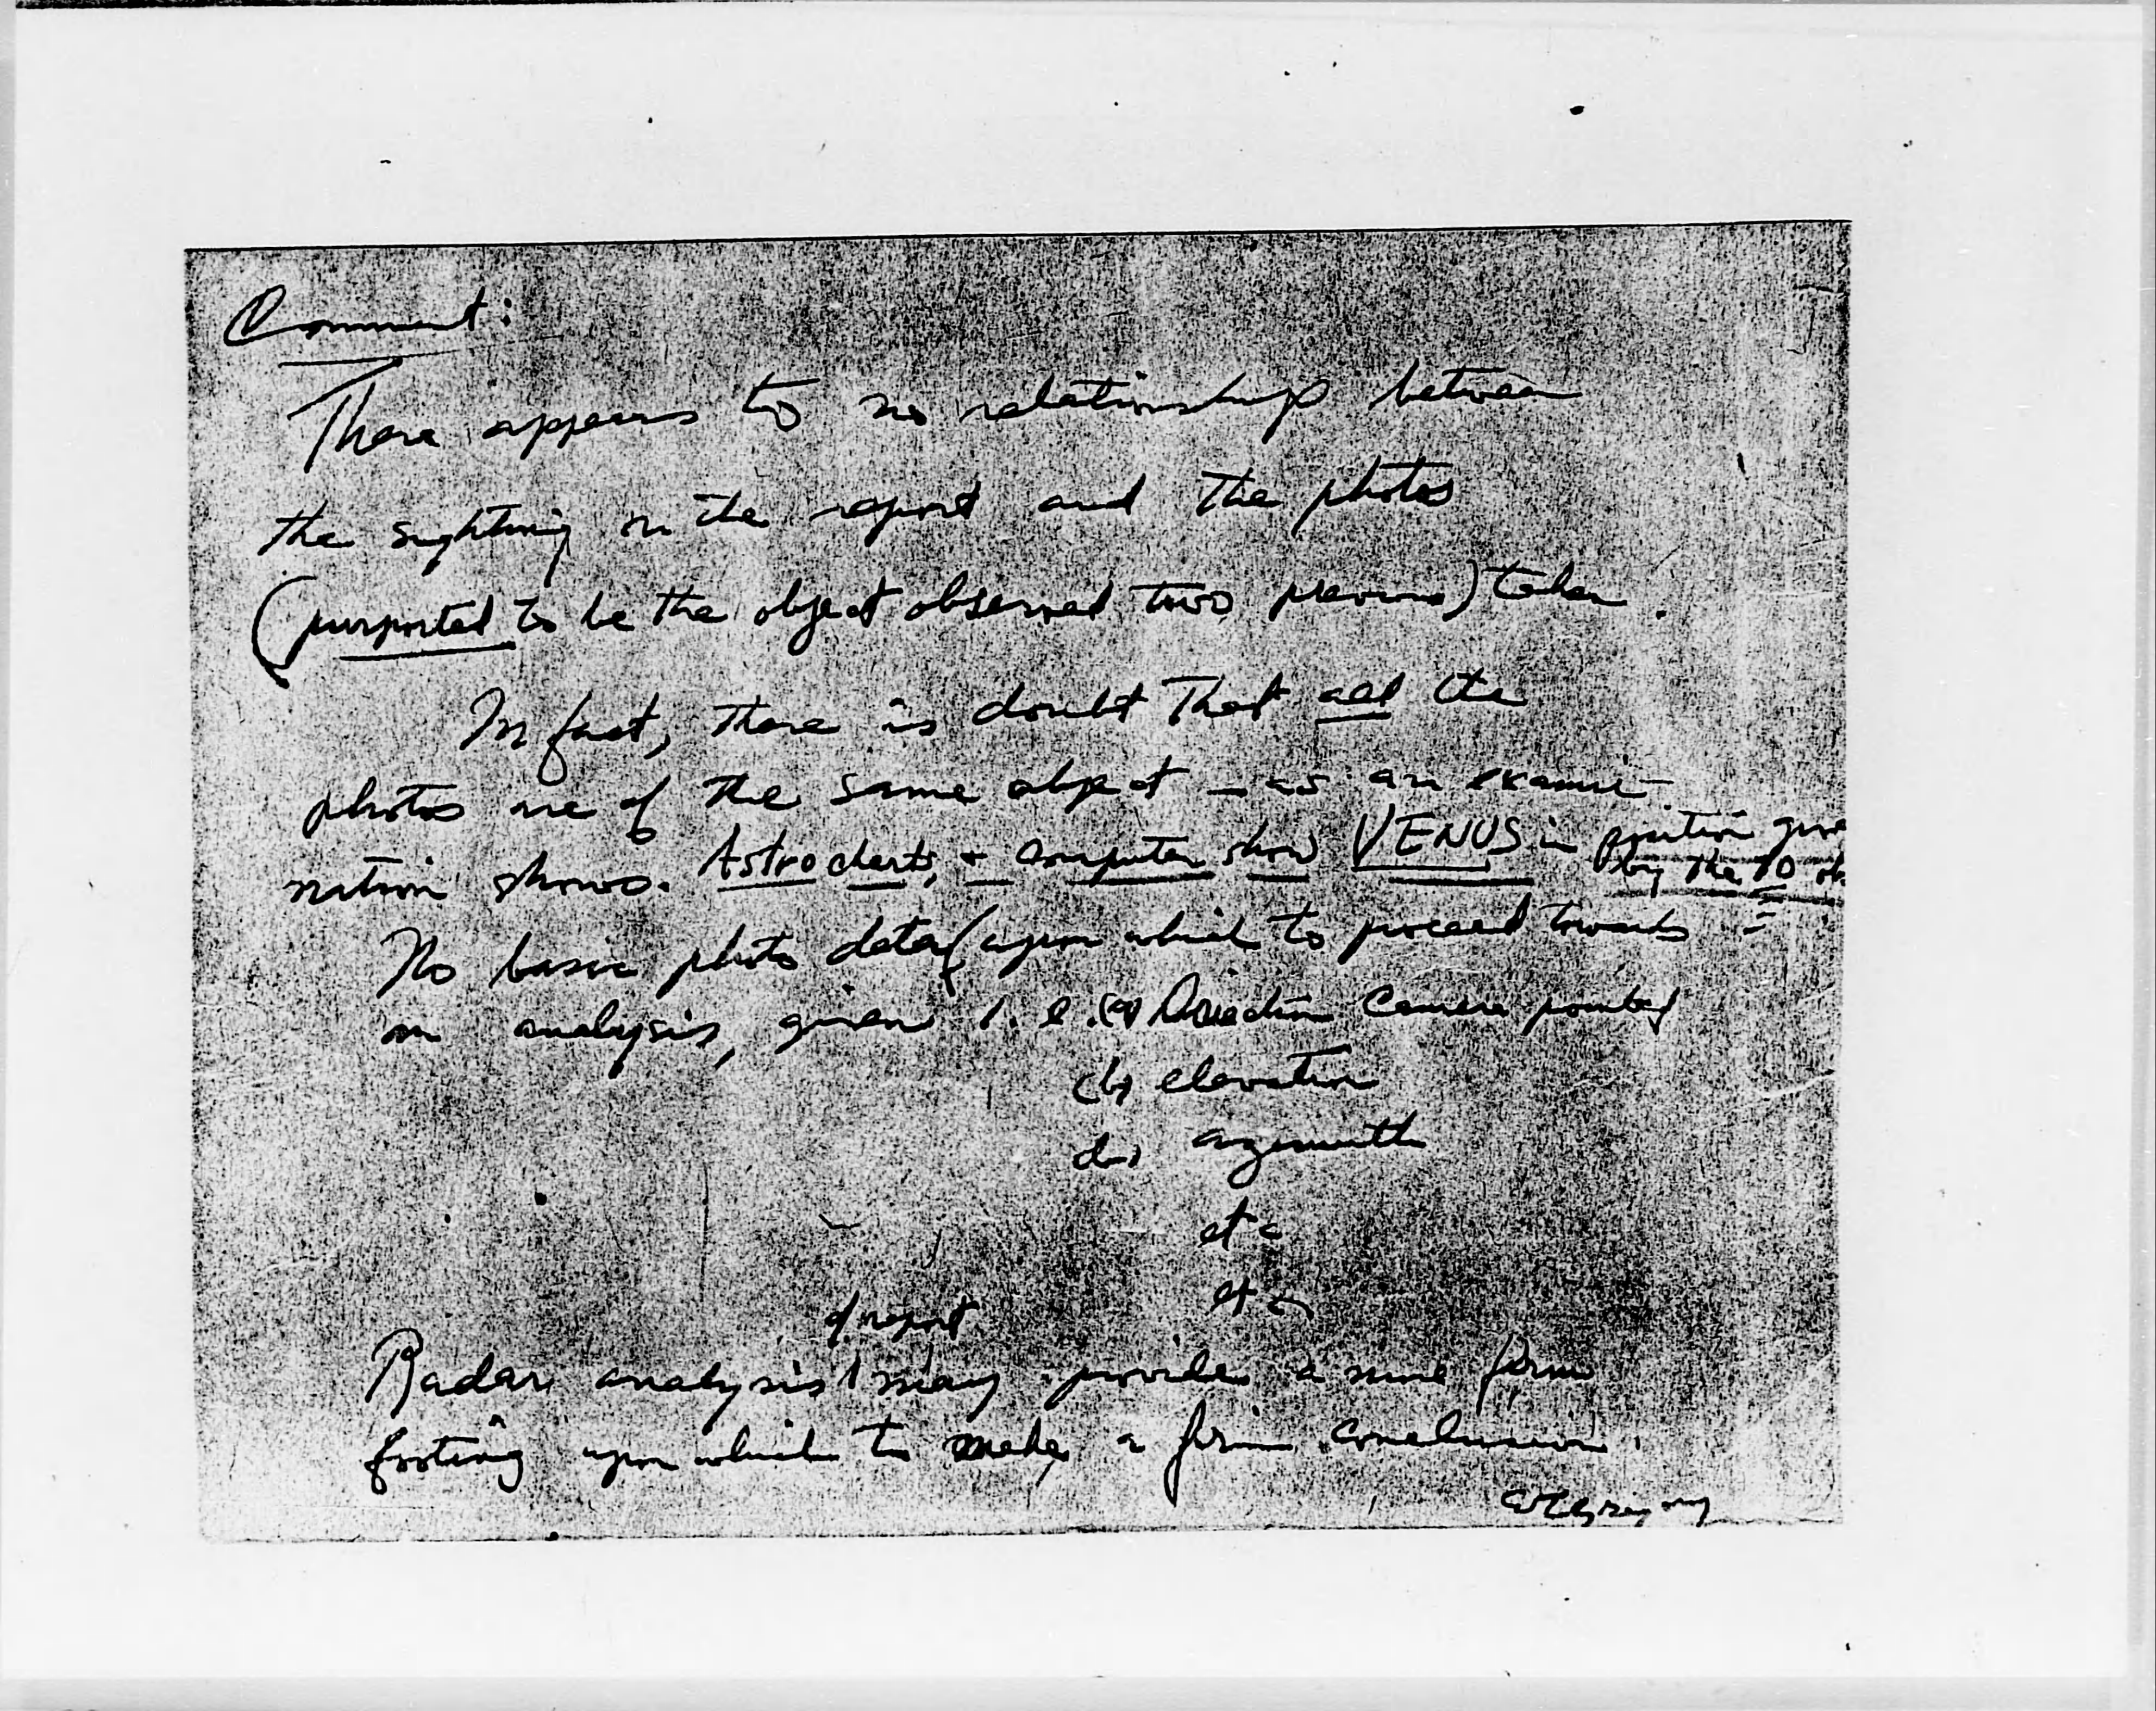 Comment:
There appears to no relationship between
the sighting in the report and the photos
(purported to be the object observed two previous) taken.
In fact, there is doubt that all the
photos are of the same object - as an exami-
nation shows. Astro charts, + computer show VENUS in position give
by the
No basic photo data (upon which to proceed towards
an analysis, given i.e. (a) Direction Camera pointed
(b) elevation
azimuth
etc
etc
of report
Radar analysis may provide a more firm
footing upon which to make a firm conclusion.